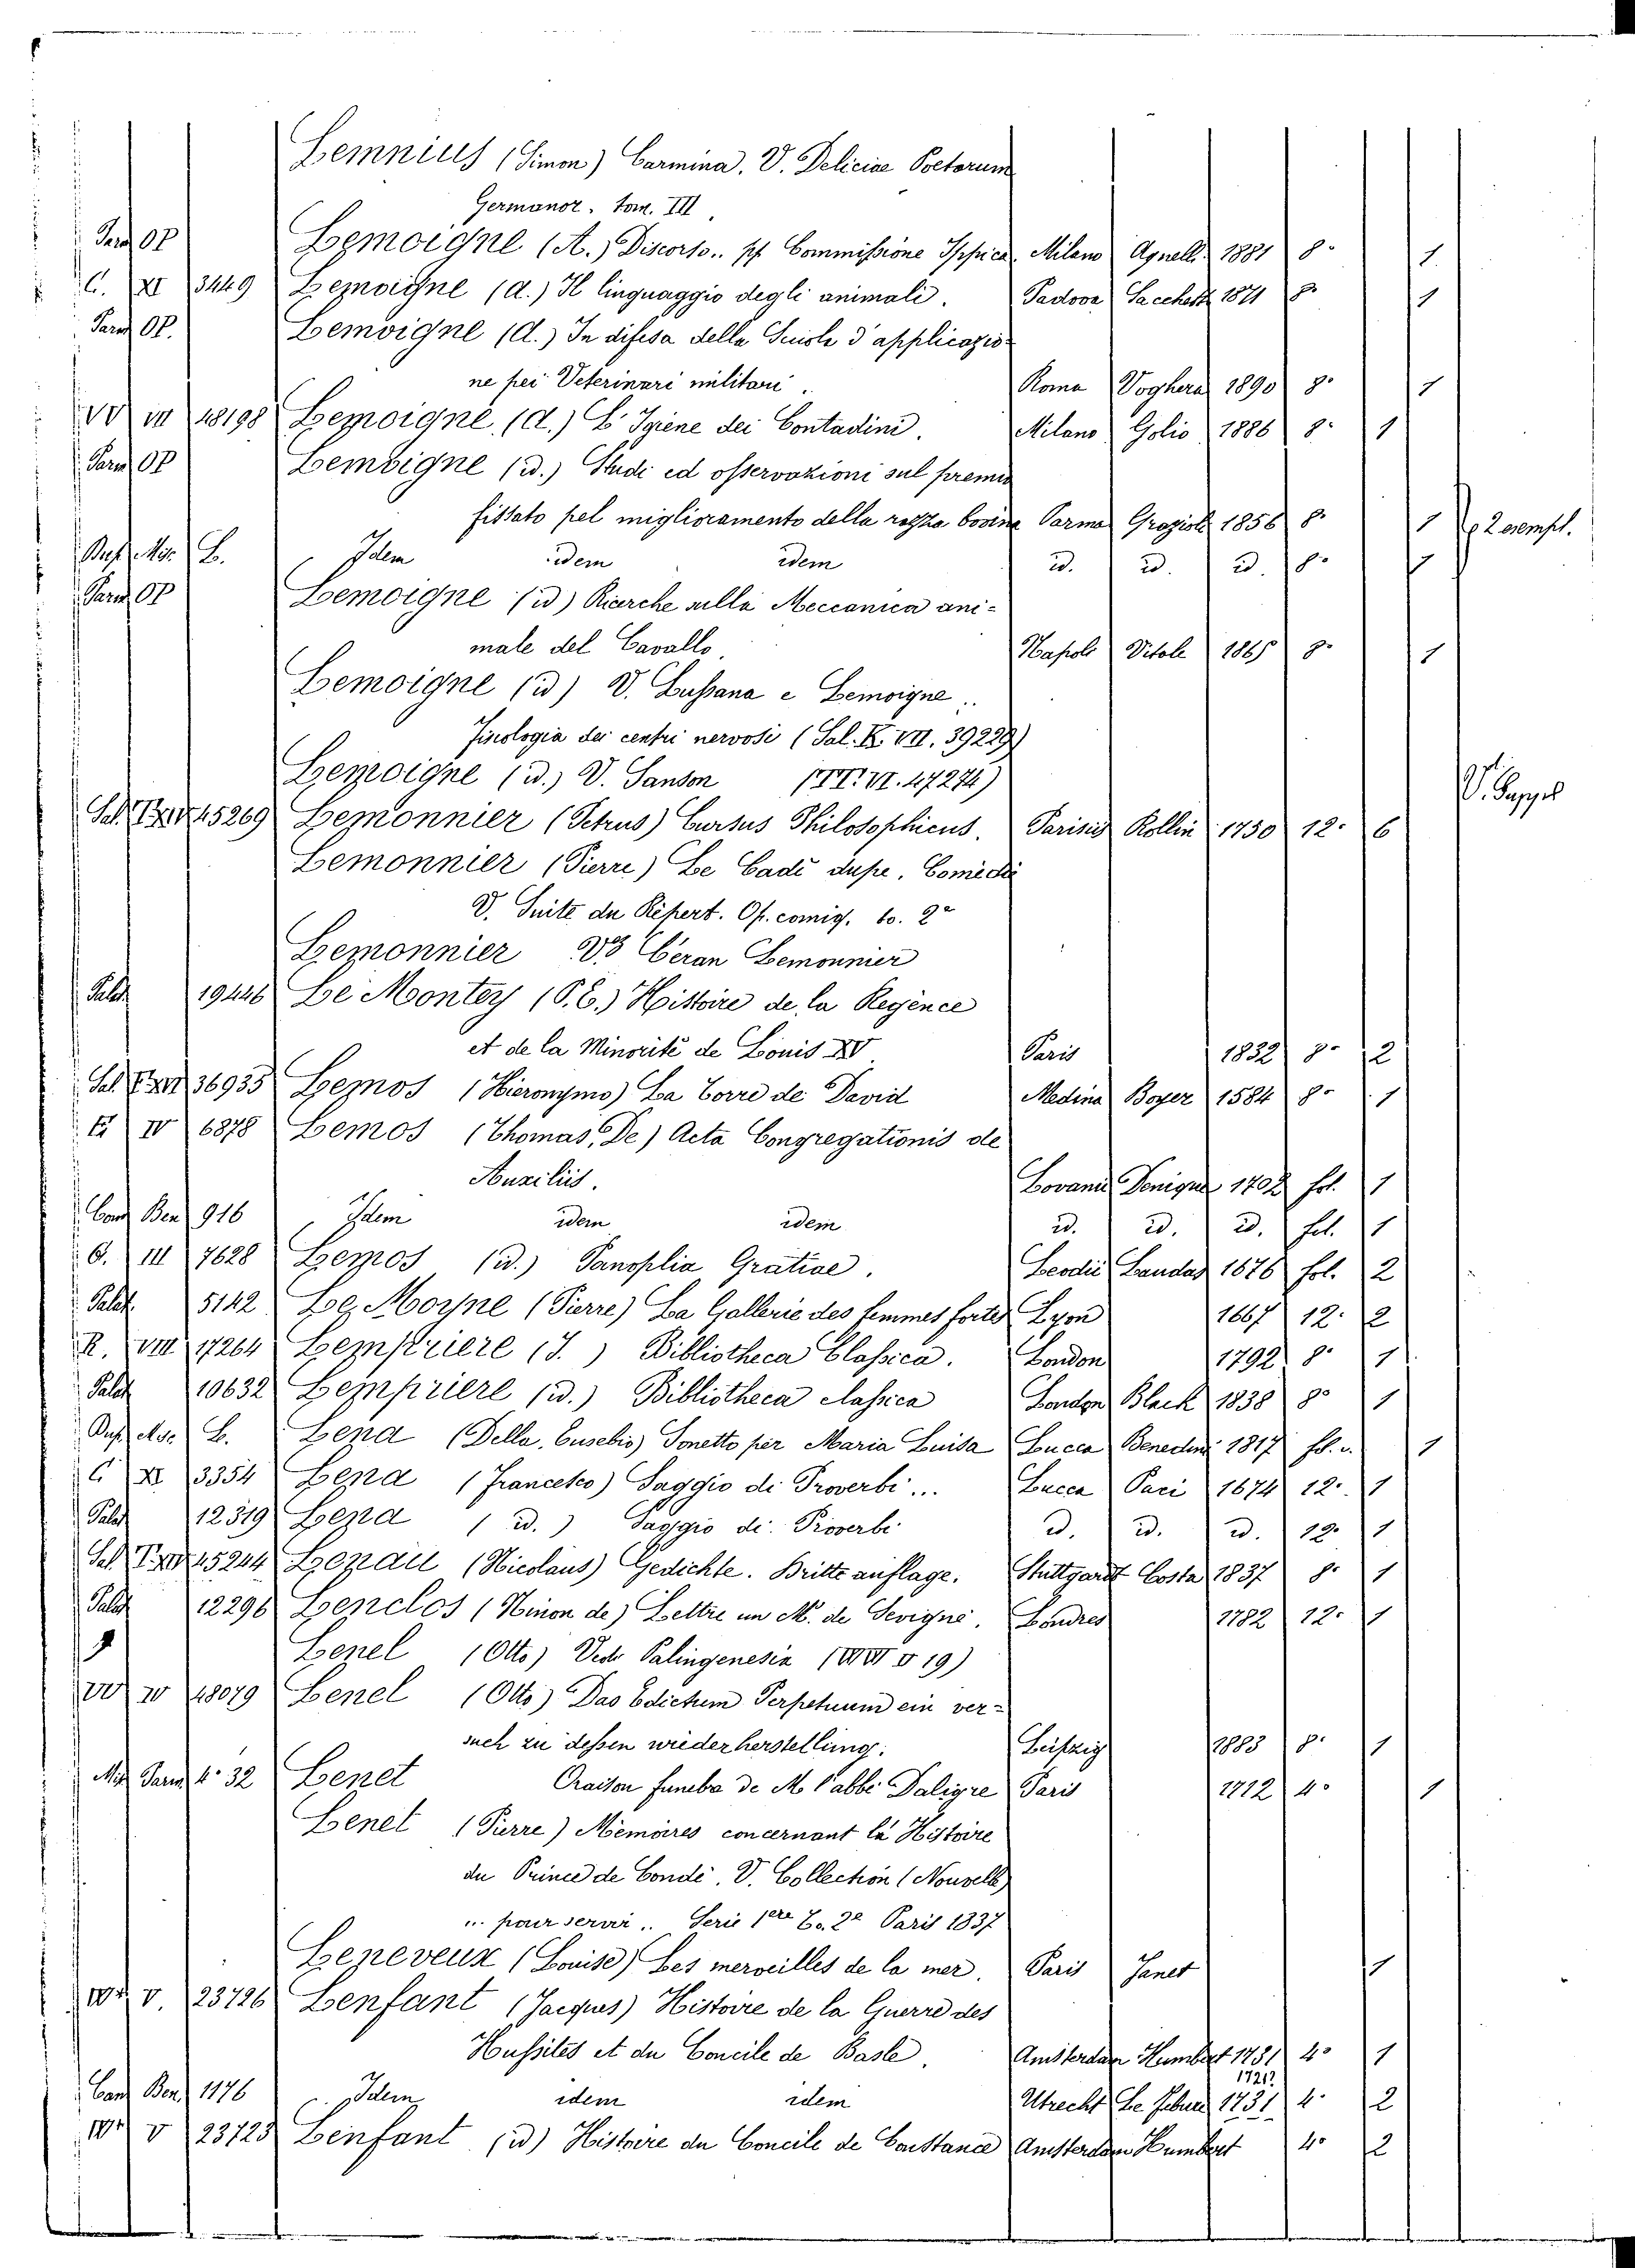 Lemnius (Simon) Carmina. V. Deliciae Poetarum
Germanor. tom. III
Parm OP Lemoigne (A.) Discorso.. pp Commissione Ippica. Milano Agnelli 1881 8° 1
C. XI 3449 Lemoigne (A.) Il linguaggio degli animali. Padova Sacchett 1871 8° 1
Parm OP. Lemoigne (A.) In difesa della Scuole d'applicazio-
ne pei Veterinari militari. Roma Voghera 1890 8° 1
VV VII 48198 Lemoigne (A.) L'Igiene dei Contadini. Milano Golio 1886 8° 1
Parm OP Lemoigne (id.) Studi ed osservazioni sul premio
fissato pel miglioramento della razza bovina Parma Grazioli 1856 8° 1 2 esempl.
B. Idem idem idem id. id. id. 8° 1
Parm OP Lemoigne (id) Ricerche sulla Meccanica ani-
male del Cavallo Napoli Vitale 1865 8° 1
Lemoigne (id) V. Lussana e Lemoigne..
Fisologia dei centri nervosi (Sal. K. VII. 39229)
Lemoigne (id.) V. Sanson (TT. VI. 47274) V. Suppl
Sal. 45269 Lemonnier (Petrus) Cursus Philosophicus. Parisiis Rollin 1750 12° 6
Lemonnier (Pierre) Le Cadi dupe. Comédie
V. Suite du Répert. Op. comiq. to. 2°
Lemonnier V. Céran Lemonnier
Palat 19446 Le Montey (P.E.) Histoire de la Regence
et de la Minorité de Louis XV Paris 1832 8° 2
Sal. 36935 Lemos (Hieronymo) La Torre de David Medina Boyer 1584 8° 1
E IV 6878 Lemos (Thomas, De) Acta Congregationis de
Auxiliis. Lovanii Denique 1702 fol. 1
Cant Ben 916 Idem idem idem id. id. id. fol. 1
G. III 7628 Lemos (id.) Panoplia Gratiae. Leodii Landas 1676 fol. 2
Palat. 5142 Le Moyne (Pierre) La Gallerie des femmes fortes Lyon 1667 12° 2
R. VIII 17264 Lempriere (J.) Bibliotheca Classica. London 1792 8° 1
Palat 10632 Lempriere (id.) Bibliotheca classica London Black 1838 8° 1
B. Lena (Della, Eusebio) Sonetto per Maria Luisa Lucca Benedini 1817 fol. v. 1
C XI 3354 Lena (Francesco) Saggio di Proverbi... Lucca Paci 1674 12° 1
Palat 12319 Lena (id.) Saggio di Proverbi id. id. id. 12° 1
Sal 45244 Lenau (Nicolaus) Gedichte. Britte auflage. Stuttgardt Costa 1837 8° 1
Palat 12296 Lenclos (Ninon de) Lettre un M. de Sevigné. Londres 1782 12° 1
Lenel (Otto) Vedi Palingenesia (VV VI 19)
VV IV 48079 Lenel (Otto) Das Edictum Perpetuum ein ver-
such zu dessen wiederherstellung. Leipzig 1883 8° 1
Mis Parm 4° 32 Lenet Oraison funebre de M. l'abbé Daligre Paris 1712 4° 1
Lenet (Pierre) Mémoires concernant la Histoire
du Prince de Condé. V. Collection (Nouvelle)
... pour servir.. Serie 1ere to. 2° Paris 1837
Leneveux (Louise) Les merveilles de la mer. Paris Janet 1
V 23726 Lenfant (Jacques) Histoire de la Guerre des
Hussites et du Concile de Basle. Amsterdam Humbert 1731 4° 1
Cant Ben 1176 Idem idem idem Utrecht Le Febure 1721? 1731 4° 2
V 23723 Lenfant (id) Histoire du Concile de Constance Amsterdam Humbert 4° 2